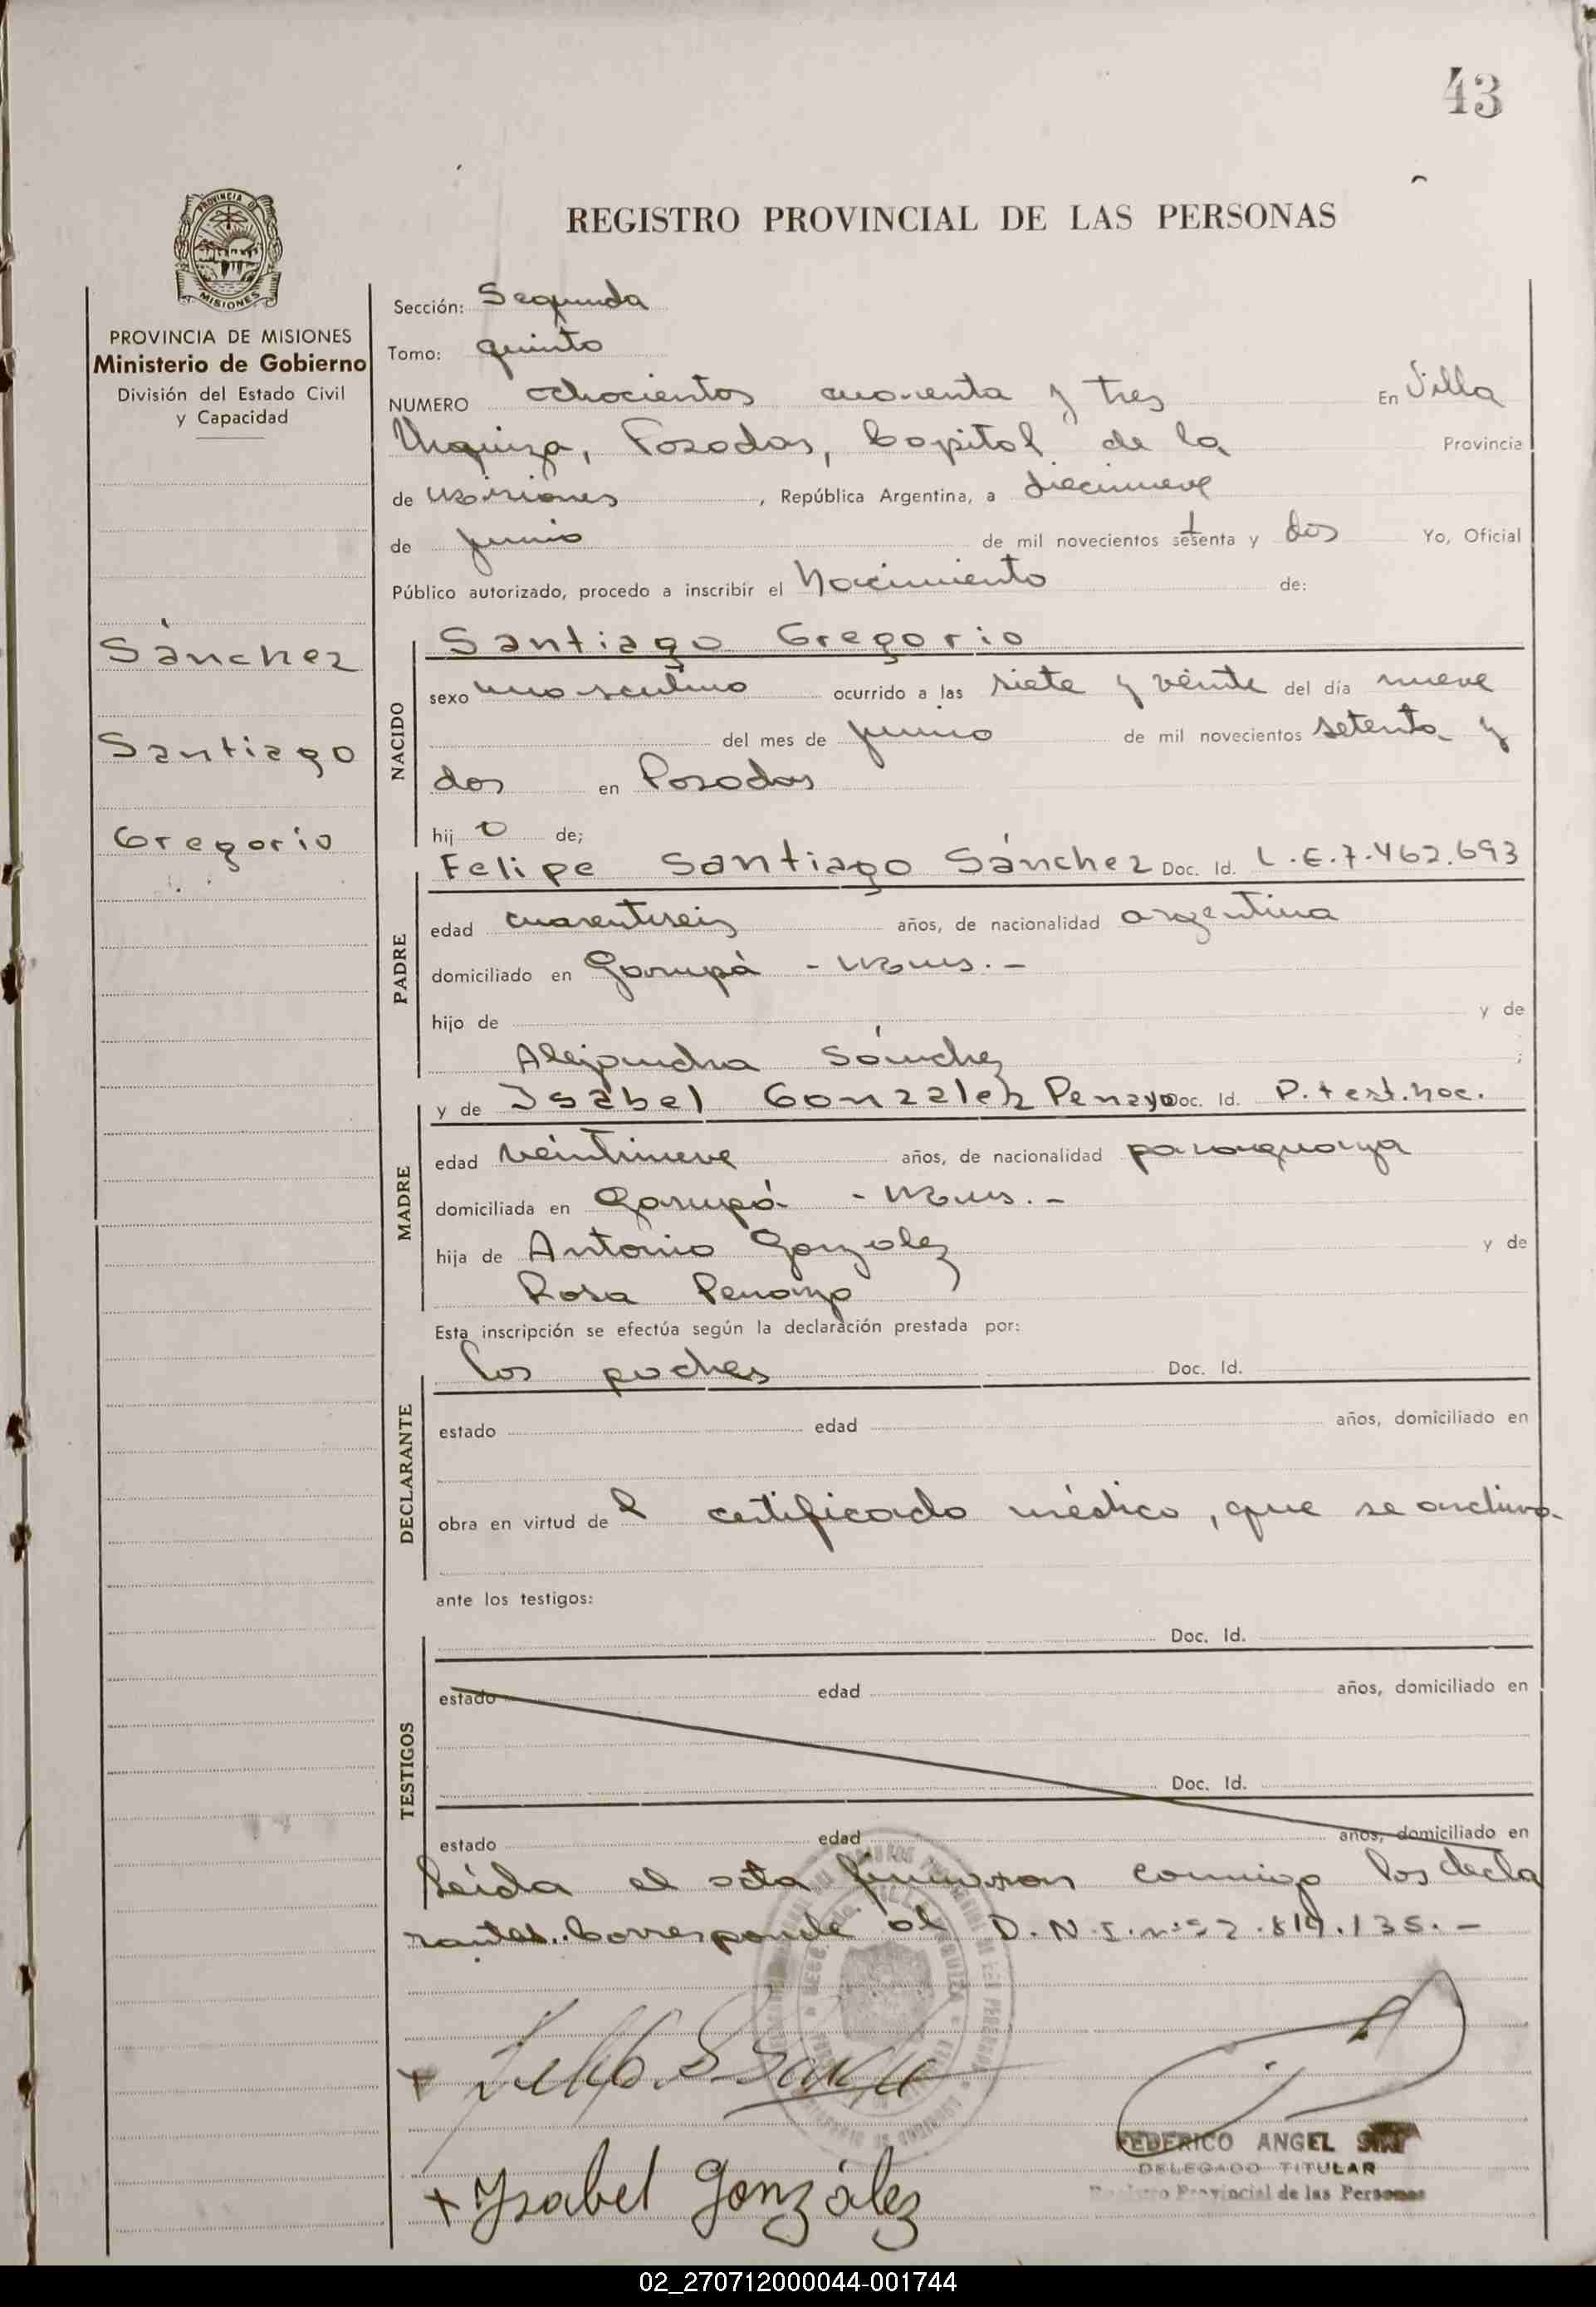 43
REGISTRO PROVINCIAL DE LAS PERSONAS
PROVINCIA DE MISIONES
Ministerio de Gobierno
División del Estado Civil
y Capacidad
Sánchez
Santiago
Gregorio
Sección: Segunda
Tomo: quinto
NUMERO ochocientos cuarenta y tres En Villa
Urquiza, Posadas, Capital de la Provincia
de Misiones, República Argentina, a diecinueve
de junio de mil novecientos setenta y dos Yo, Oficial
Público autorizado, procedo a inscribir el Nacimiento de:
NACIDO
Santiago Gregorio
sexo masculino ocurrido a las siete y veinte del día nueve
del mes de junio de mil novecientos setenta y
dos en Posadas
hij o de;
PADRE
Felipe Santiago Sánchez Doc. Id. L.E.7.462.693
edad cuarentiseis años, de nacionalidad argentina
domiciliado en Garupá - Mnes. -
hijo de y de
Alejandra Sánchez ;
MADRE
y de Isabel Gonzalez Penayo Doc. Id. P. test. noc.
edad veintinueve años, de nacionalidad paraguaya
domiciliada en Garupá - Mnes. -
hija de Antonio Gonzalez y de
Rosa Penayo
Esta inscripción se efectúa según la declaración prestada por:
DECLARANTE
los padres Doc. Id.
estado edad años, domiciliado en
obra en virtud de l certificado médico, que se archiva.
ante los testigos:
TESTIGOS
Doc. Id.
estado edad años, domiciliado en
Doc. Id.
estado edad años, domiciliado en
Leída el acta firmaron conmigo los decla
rantes. Corresponde al D.N.I. nº 22.819.135. -
+ Ysabel González
FEDERICO ANGEL
DELEGADO TITULAR
Registro Provincial de las Personas
02_270712000044-001744